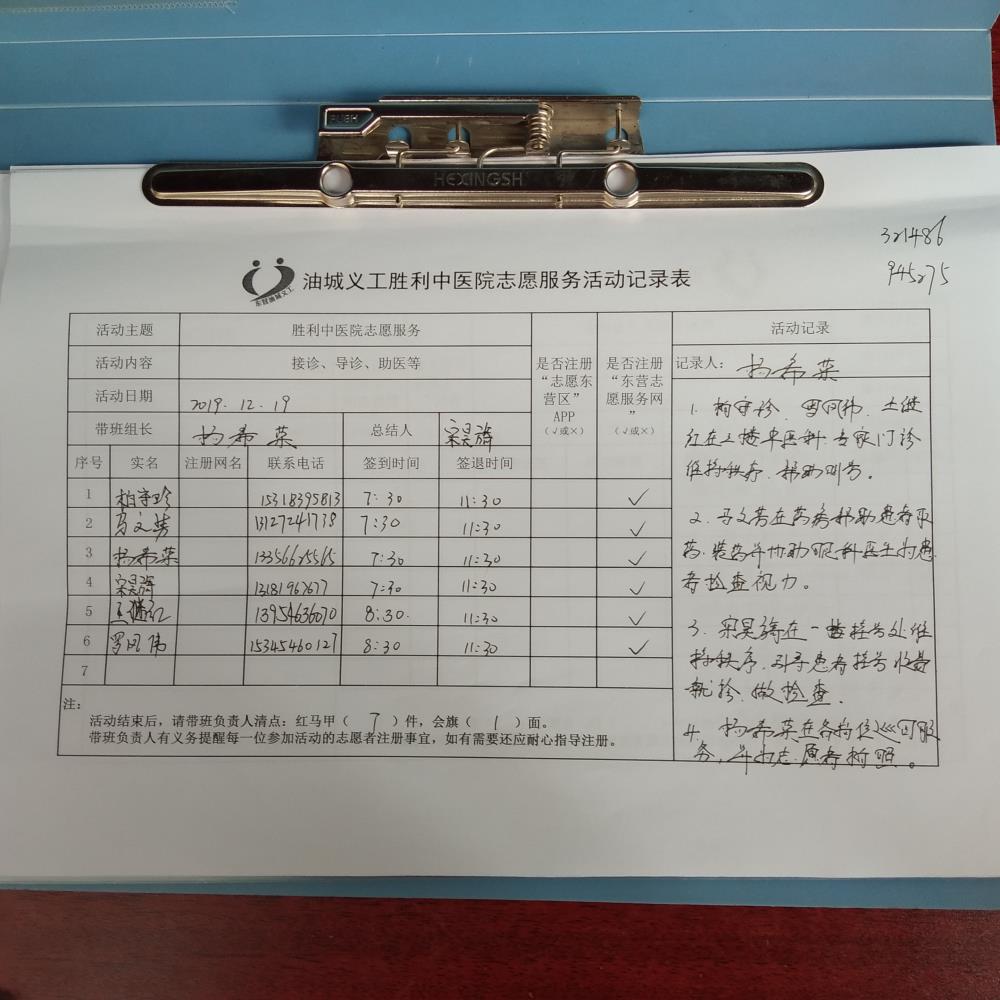 PUSH
HEXINGSH
321486
945275
东营油城义工
油城义工胜利中医院志愿服务活动记录表
活动主题 胜利中医院志愿服务 是否注册“志愿东营区”APP（√或×） 是否注册“东营志愿服务网”（√或×） 活动记录
活动内容 接诊、导诊、助医等
活动日期 2019.12.19
带班组长 杨希荣 总结人 宋昊旂
序号 实名 注册网名 联系电话 签到时间 签退时间
1 柏守珍 15318395813 7:30 11:30 ✓
2 马文芳 13127241738 7:30 11:30 ✓
3 杨希荣 13356625565 7:30 11:30 ✓
4 宋昊 13181967677 7:30 11:30 ✓
5 王继红 13954636070 8:30 11:30 ✓
6 罗同伟 15345460127 8:30 11:30 ✓
7
注：
活动结束后，请带班负责人清点：红马甲（ 7 ）件，会旗（ 1 ）面。
带班负责人有义务提醒每一位参加活动的志愿者注册事宜，如有需要还应耐心指导注册。
记录人： 杨希荣
1. 柏守珍、罗同伟、王继
红在二楼中医科专家门诊
维持秩序，帮助叫号。
2. 马文芳在药房帮助患者取
药、装药并协助眼科医生为患
者检查视力。
3. 宋昊 在一楼挂号处维
持秩序，引导患者挂号收费
就诊、做检查.
4. 杨希荣在各岗位巡回服
务，并为志愿者拍照。